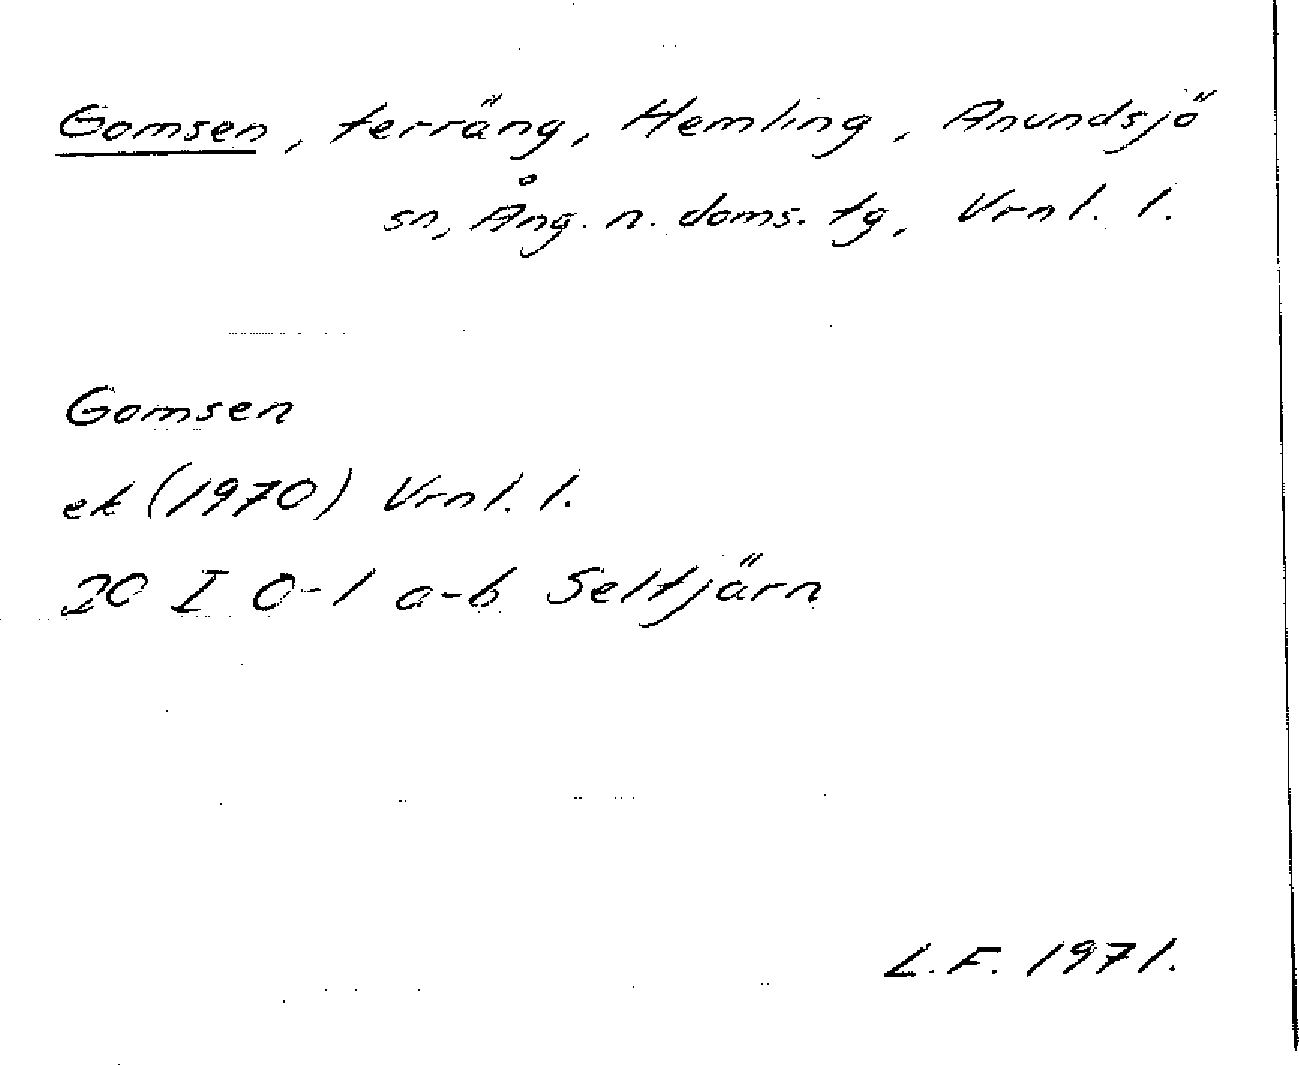 Gomsen, terräng, Hemling, Anundsjö
sn, Ång. n. doms. tg, Vrnl. l.
Gomsen
ek (1970) Vrnl. l.
20 I 0-1 a-b Seltjärn
L.F. 1971.